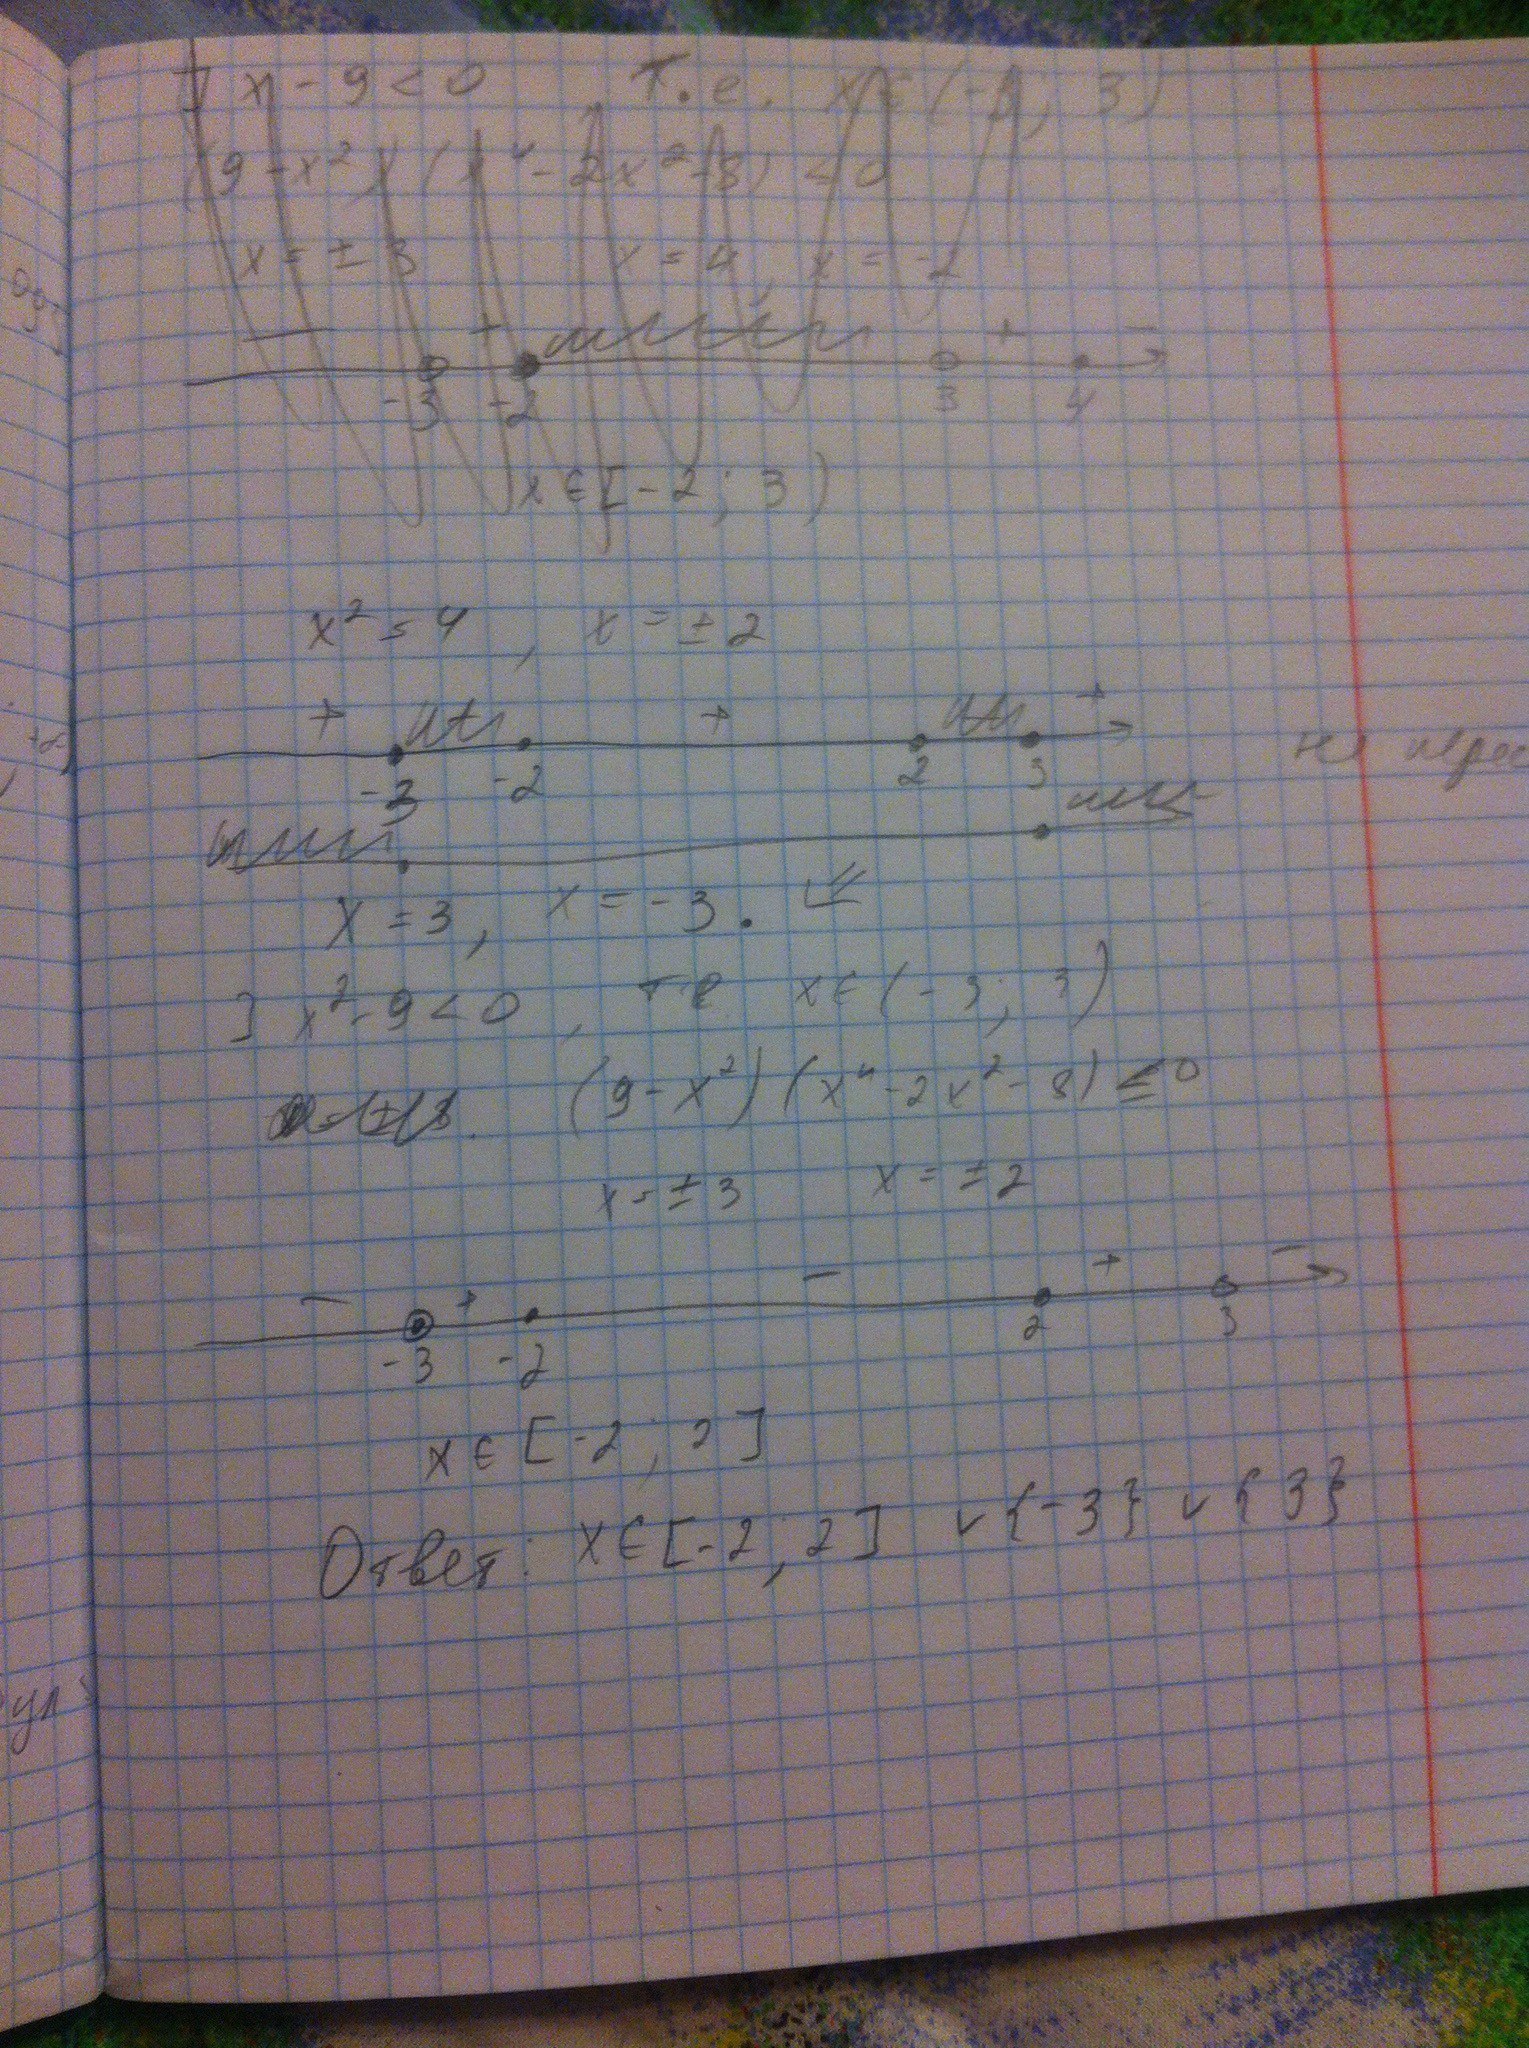 x - 9 < 0 т.е. x ∈ (-3; 3)
(9 - x²) (x⁴ - 2x² - 8) ≤ 0
x = ± 3 x = 4, x = -2
+ -
-3 -2 3 4
x ∈ [-2; 3)
x² = 4, x = ± 2
+ + +
-3 -2 2 3
x = 3, x = -3.
] x² - 9 < 0, т.е x ∈ (-3; 3)
(9 - x²) (x⁴ - 2x² - 8) ≤ 0
x = ± 3 x = ± 2
- + - + -
-3 -2 2 3
x ∈ [-2; 2]
Ответ: x ∈ [-2; 2] ∨ {-3} ∨ {3}